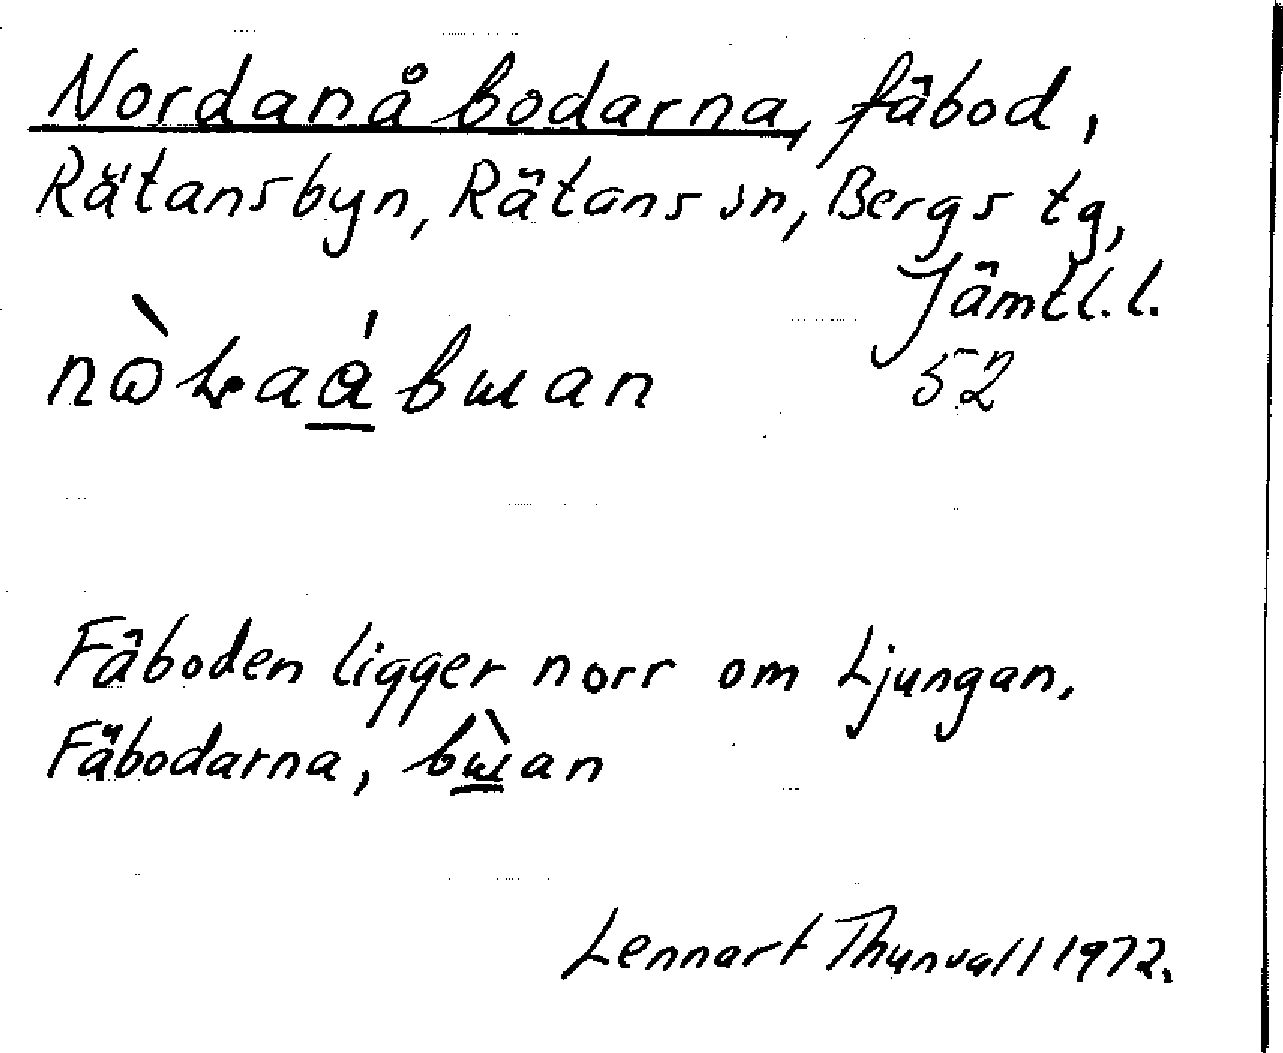 Nordanå bodarna, fäbod,
Rätansbyn, Rätans sn, Bergs tg,
Jämtl. l.
52
Fäboden ligger norr om Ljungan.
Fäbodarna, bɯ̀an
Lennart Thunvall 1972.